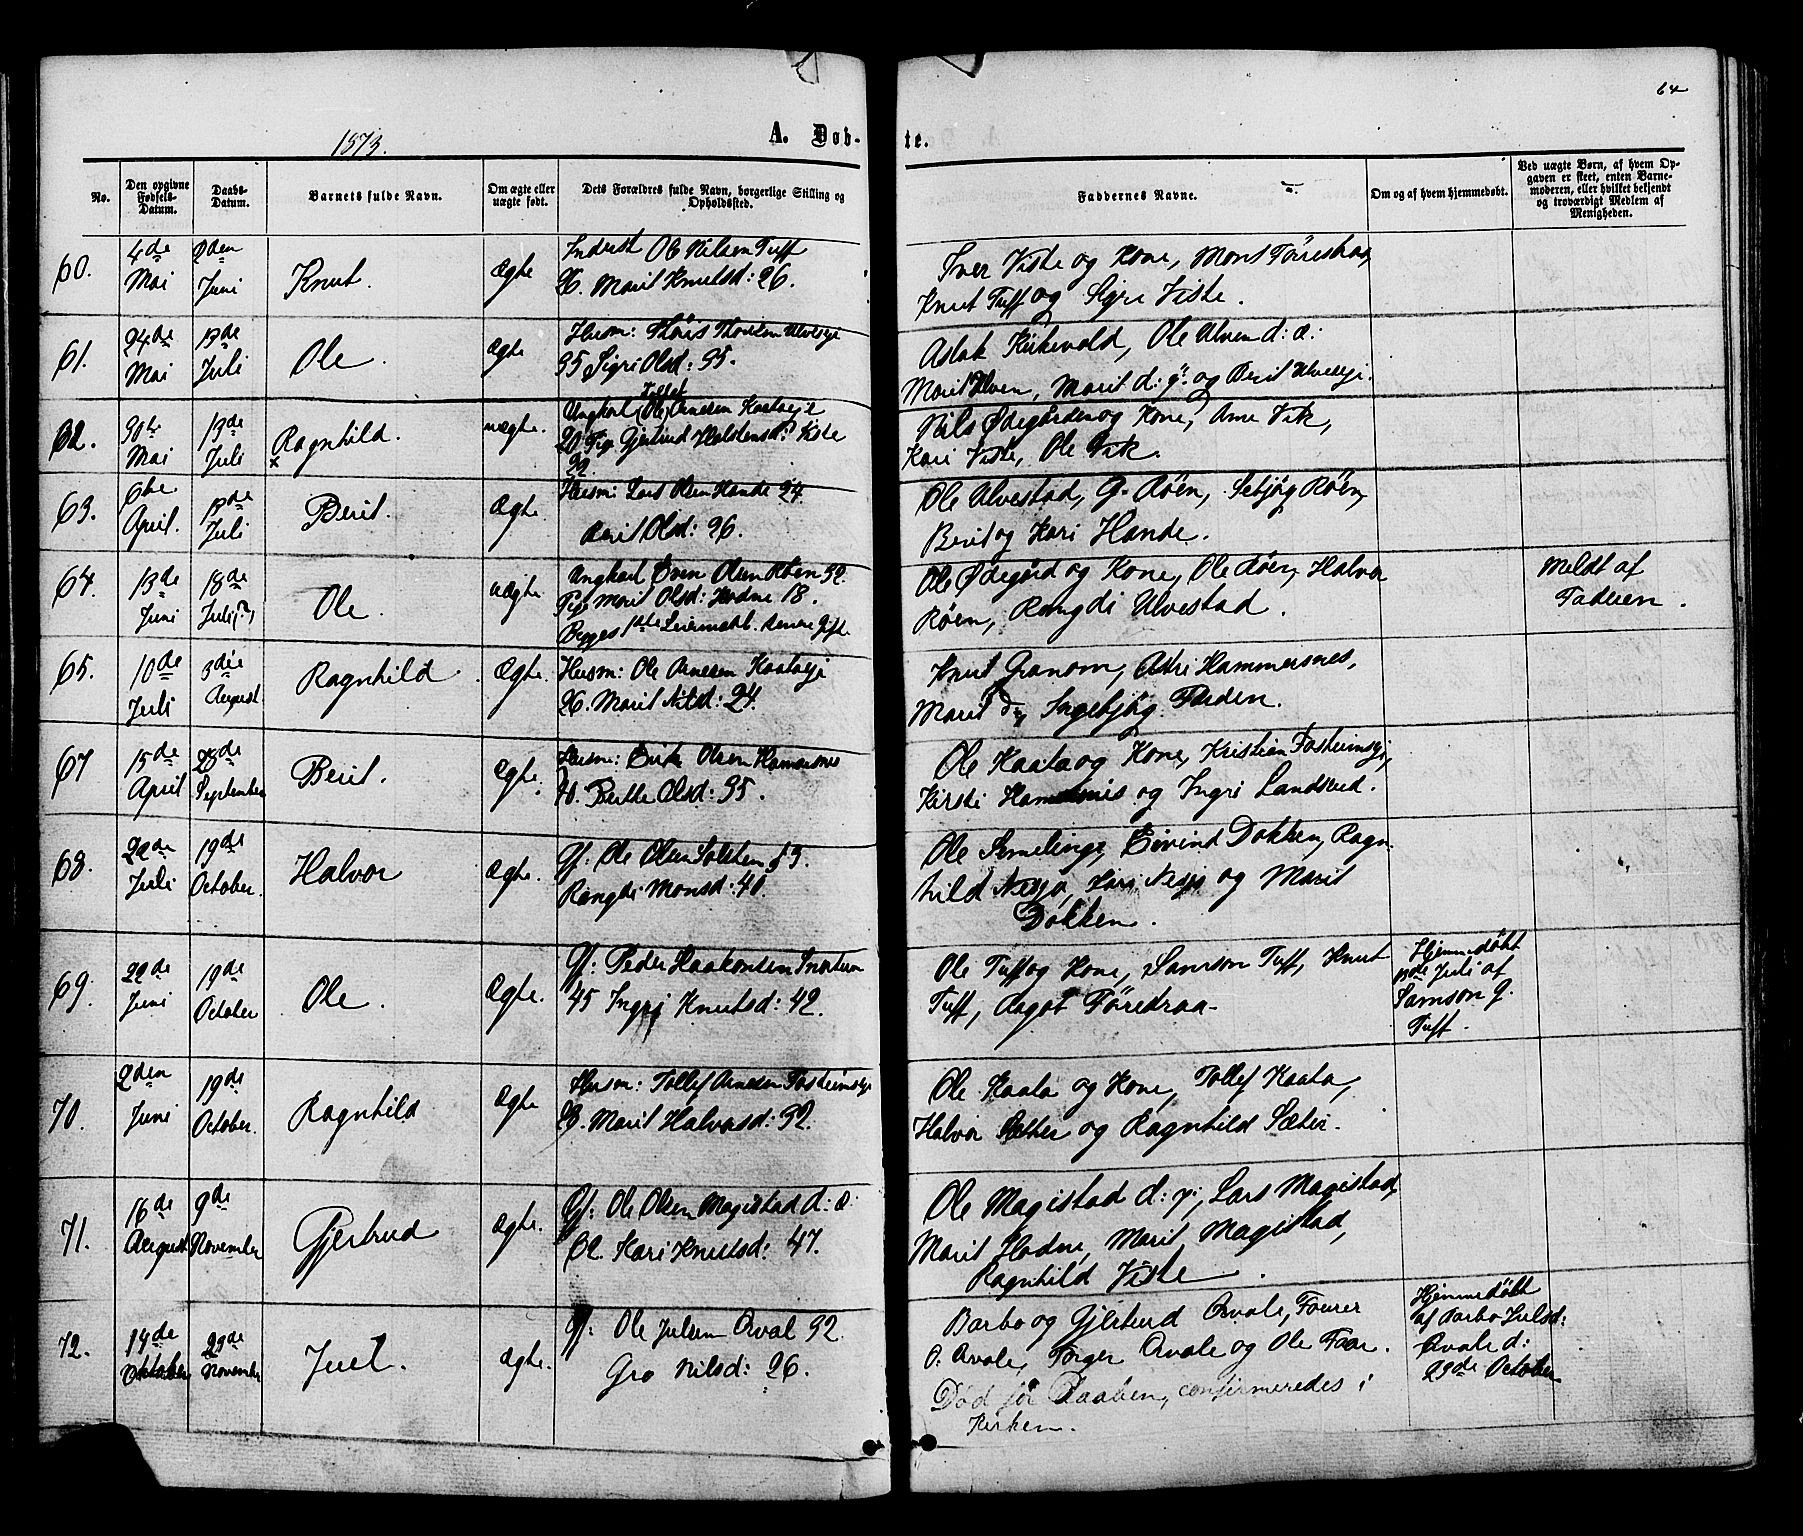 64
1873.
A. Døb-
te.
No.
Den opgivne
Fødsels-
Datum.
Daabs-
Datum.
Barnets fulde Navn.
Om ægte eller
uægte født.
Dets Forældres fulde Navn, borgerlige Stilling og
Opholdssted.
Faddernes Navne.
Om og af hvem hjemmedøbt.
Ved uægte Børn, af hvem Op-
gaven er skeet, enten Barne-
moderen, eller hvilket bekjendt
og troværdigt Medlem af
Menigheden.
60.
4de
Mai
2den
Juni
Knut.
Ægte
Inderst Ole Nilsen Tuff
26. Marit Knutsd: 26.
Iver Viste og Kone, Mons
Knut Tuff og Sigri Viste.
61.
24de
Mai
13de
Juli
Ole.
Ægte
Husm: Thorsten Ulveseje
35 Sigri Olsd: 35.
Aslak Kirkevold, Ole Ulven d: æ:
Marit Ulven, Marit d: y: og Berit Ulveseje.
62.
Mai
13de
Juli
Ragnhild.
x
uægte.
Ungkarl Ole Arnesen Kaataeje
20 Pige Gjertrud Halstensd: Viste
22.
Nils Ødegården og Kone, Arne Vik,
Kari Viste, Ole Vik.
63.
6te
April.
13de
Juli
Berit.
Ægte.
Husm: Lars Olsen Hande 24
Berit Olsd: 26.
Ole Ulvestad, G. Røen, Sebjøg Røen,
Berit og Kari Hande.
64.
13de
Juni
18de
Juli(?)
Ole.
uægte
Ungkarl Even Olsen Røen 32.
Pige Marit Olsd: Hodne 18.
Begges 1ste Leiermaal. Senere Gifte
Ole Ødegård og Kone, Ole Røen, Halvor
Røen, Rangdi Ulvestad.
Meldt af
Faderen.
65.
10de
Juli
3die
August
Ragnhild
Ægte.
Husm: Ole Arnesen Kaataeje
26. Marit Nilsd: 24.
Knut Granom, Astri Hammersnes,
Marit og Ingebjøg Færden.
67
15de
April
28de
September
Berit.
Ægte.
Husm: Erik Olsen Hamersnes
40. Berthe Olsd: 35.
Ole Kaata og Kone, Kristian Fosheimseje,
Kirsti Hamersnes og Ingri Landsend.
68.
22de
Juli
19de
October.
Halvor
Ægte.
Gf: Ole Olsen Solsten 53.
Rangdi Monsd: 40.
Ole Semelinge, Eivind Dokken, Ragn-
hild Nesja, Kari Nesja og Marit
Dokken.
69.
22de
Juni
19de
October
Ole.
Ægte.
Gf: Peder Haakonsen
45 Ingri Knutsd: 42.
Ole Tuff og Kone, Samson Tuff, Knut
Tuff, Aagot Føredraa-
Hjemmedøbt
Juli af
Samson g.
Tuff.
70.
2den
Juni
19de
October.
Ragnhild
Ægte
Husm: Tollef Arnesen Fosheimseje
28. Marit Halvorsd: 32.
Ole Kaata og Kone, Tollef Kaata,
Halvor Sæther og Ragnhild Sæter.
71.
16de
August
9de
November
Gjertrud
Ægte.
Gf: Ole Olsen Magistad d: æ:
62. Kari Knutsd: 47.
Ole Magistad d: y:, Lars Magistad,
Marit Hodne, Marit Magistad,
Ragnhild Viste.
72.
14de
Oktober
23de
November
Juel.
Ægte.
Gf: Ole Julsen Qvale 32.
Gro Nilsd: 26.
Barbo og Gjertrud Qvale, Tourer
O. Qvale, Torger Qvale og Ole Faar.
Død før Daaben, confirmeredes i
Kirken.
Hjemmedøbt
af Barbo Julsd:
Qvale d:
23de October